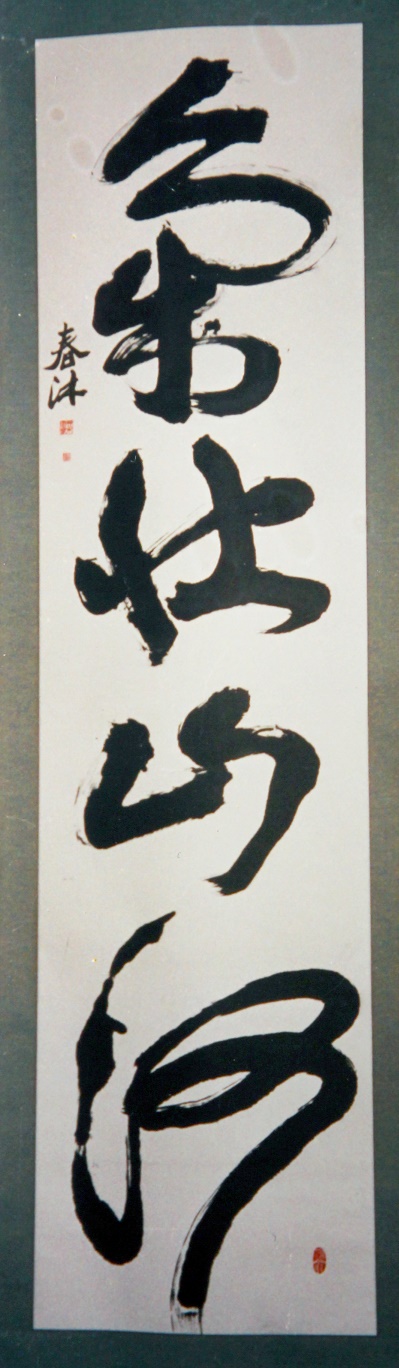 氣壯山河
春沐